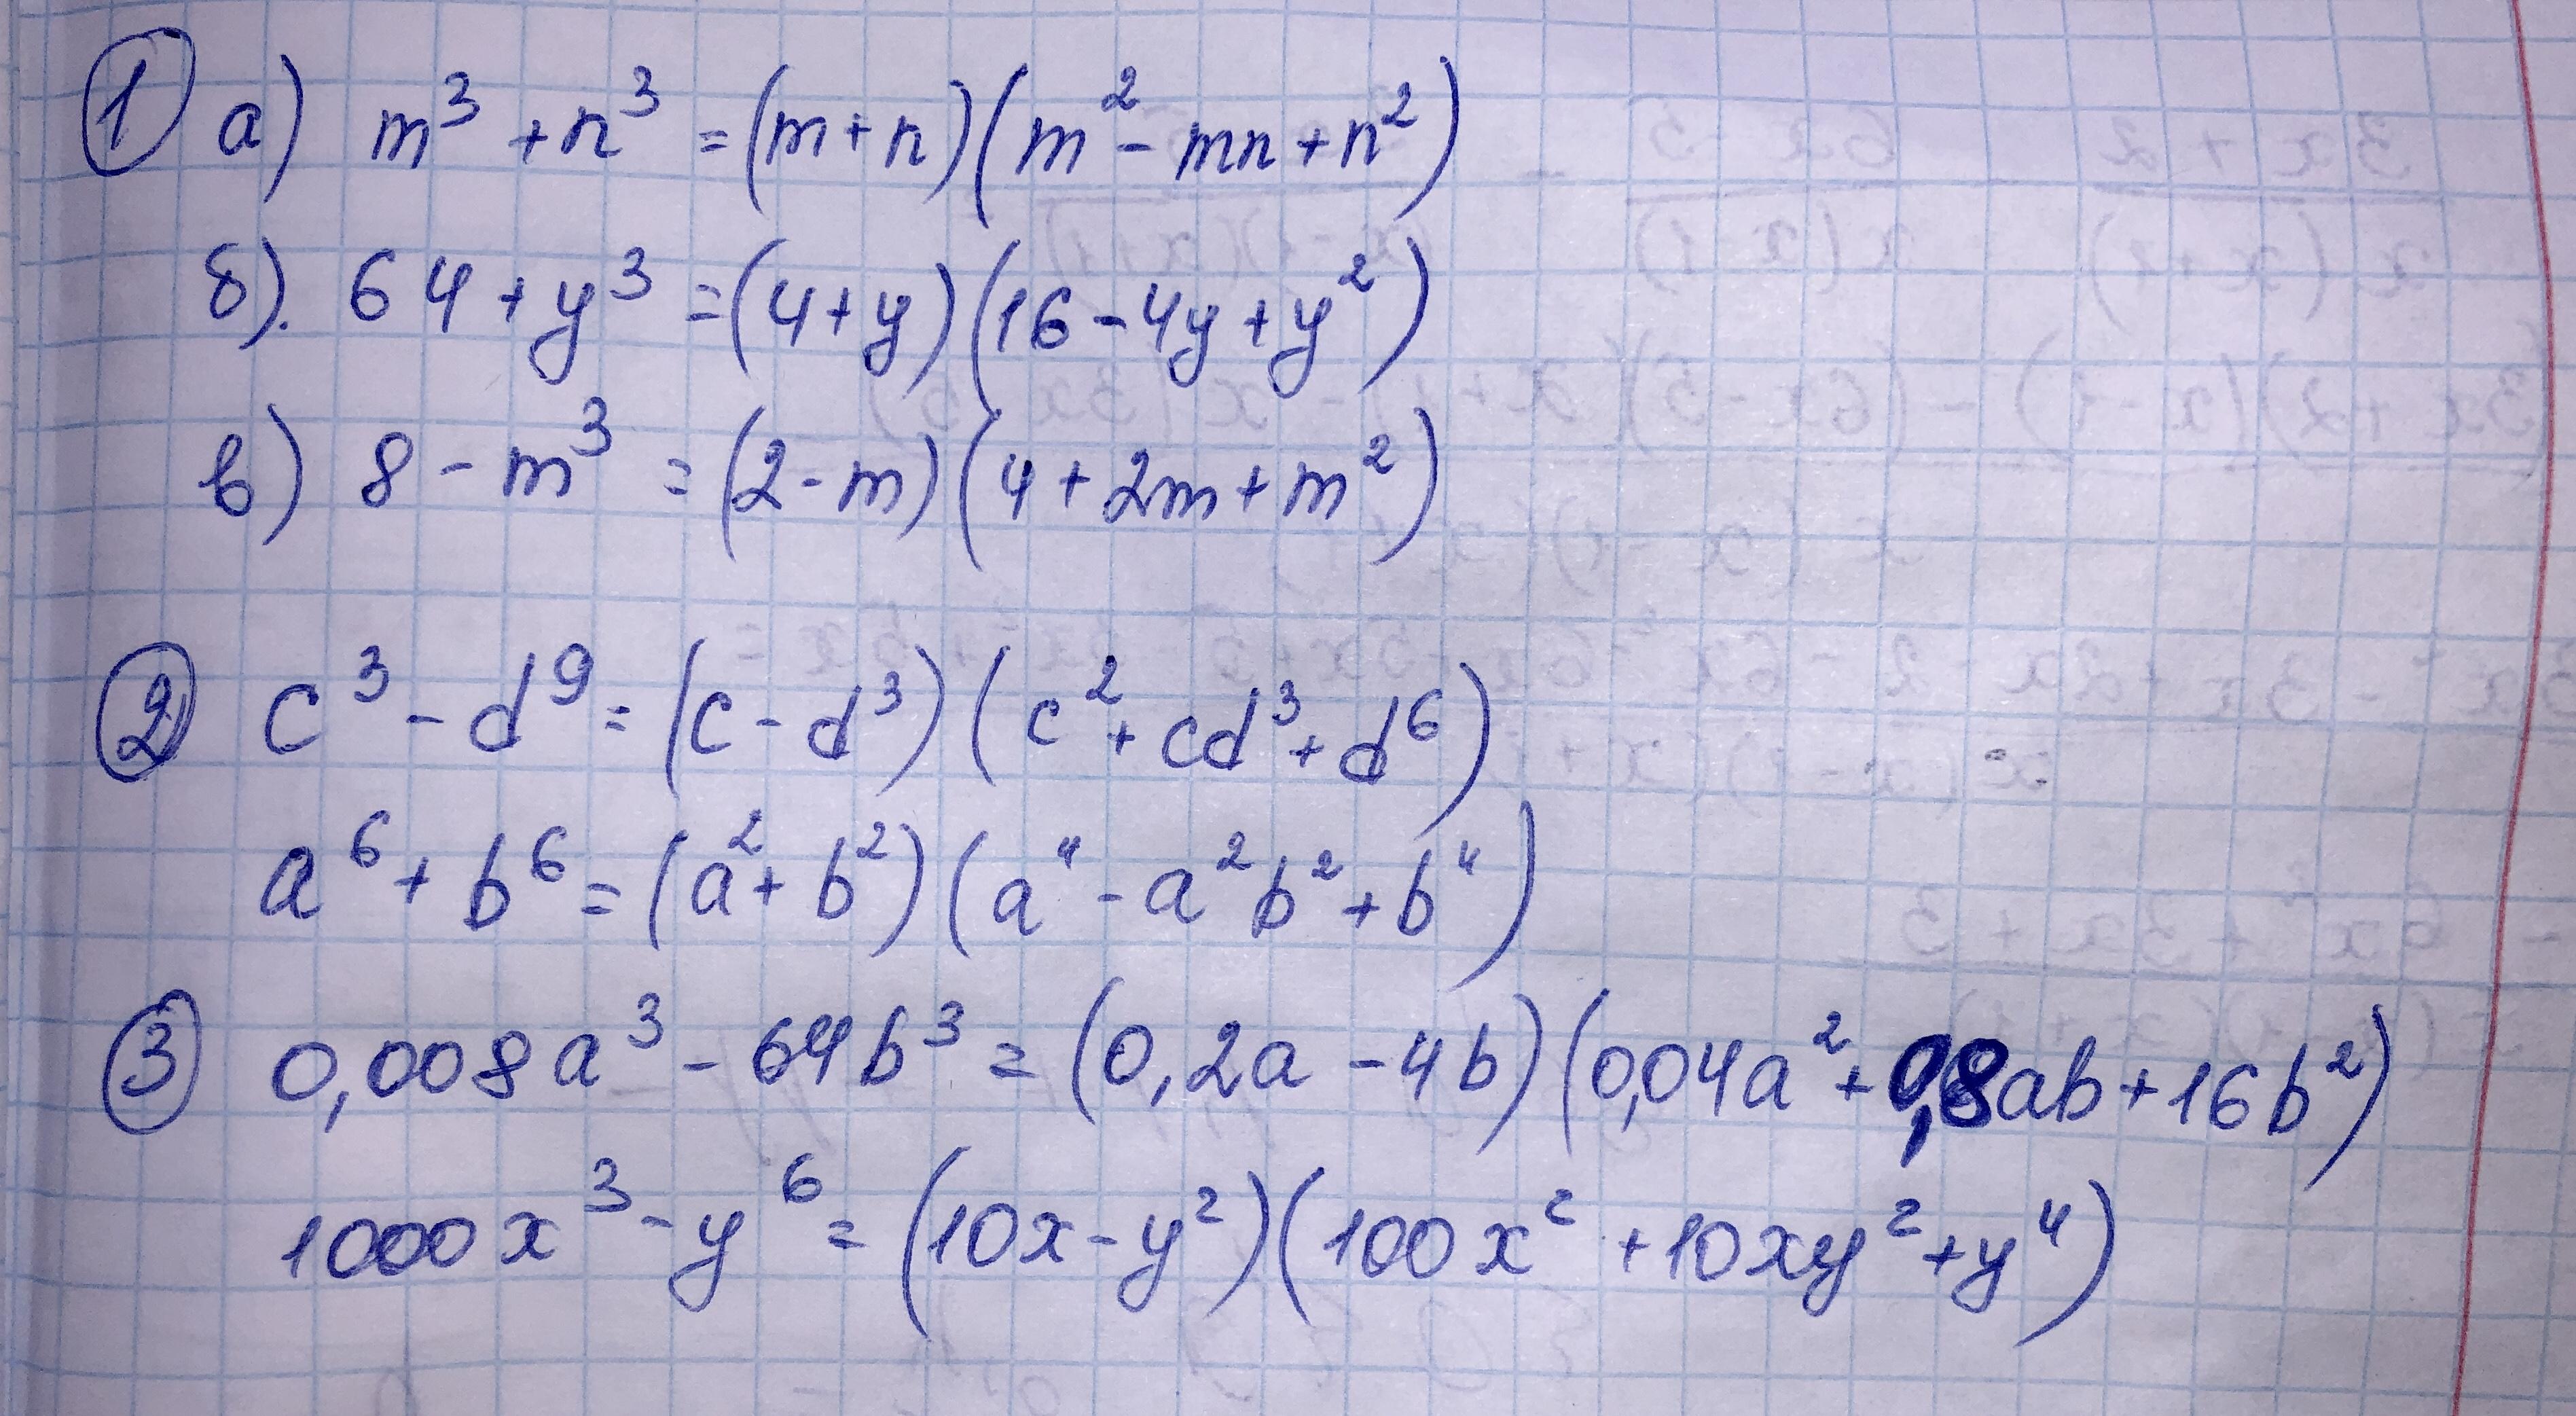 ① а) m³ + n³ = (m + n)(m² - mn + n²)
б). 64 + y³ = (4 + y)(16 - 4y + y²)
в) 8 - m³ = (2 - m)(4 + 2m + m²)
② c³ - d⁹ = (c - d³)(c² + cd³ + d⁶)
a⁶ + b⁶ = (a² + b²)(a⁴ - a²b² + b⁴)
③ 0,008a³ - 64b³ = (0,2a - 4b)(0,04a² + 0,8ab + 16b²)
1000x³ - y⁶ = (10x - y²)(100x² + 10xy² + y⁴)